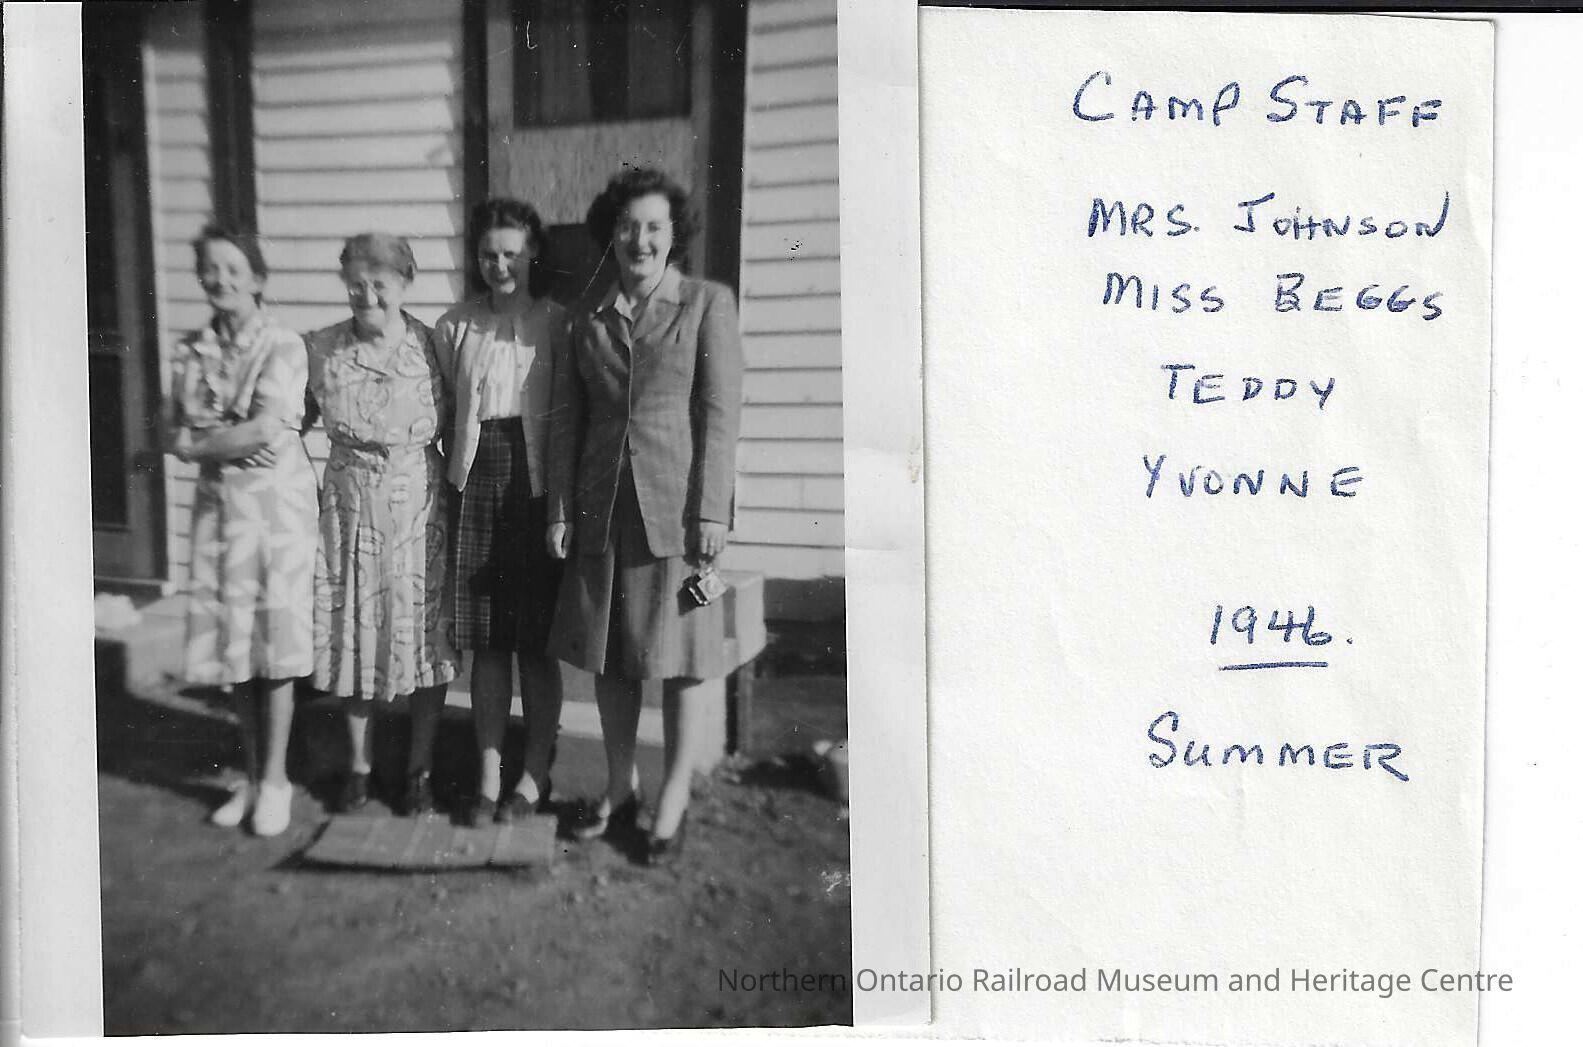 CAMP STAFF
MRS. JOHNSON
MISS BEGGS
TEDDY
YVONNE
1946.
SUMMER
Northern Ontario Railroad Museum and Heritage Centre